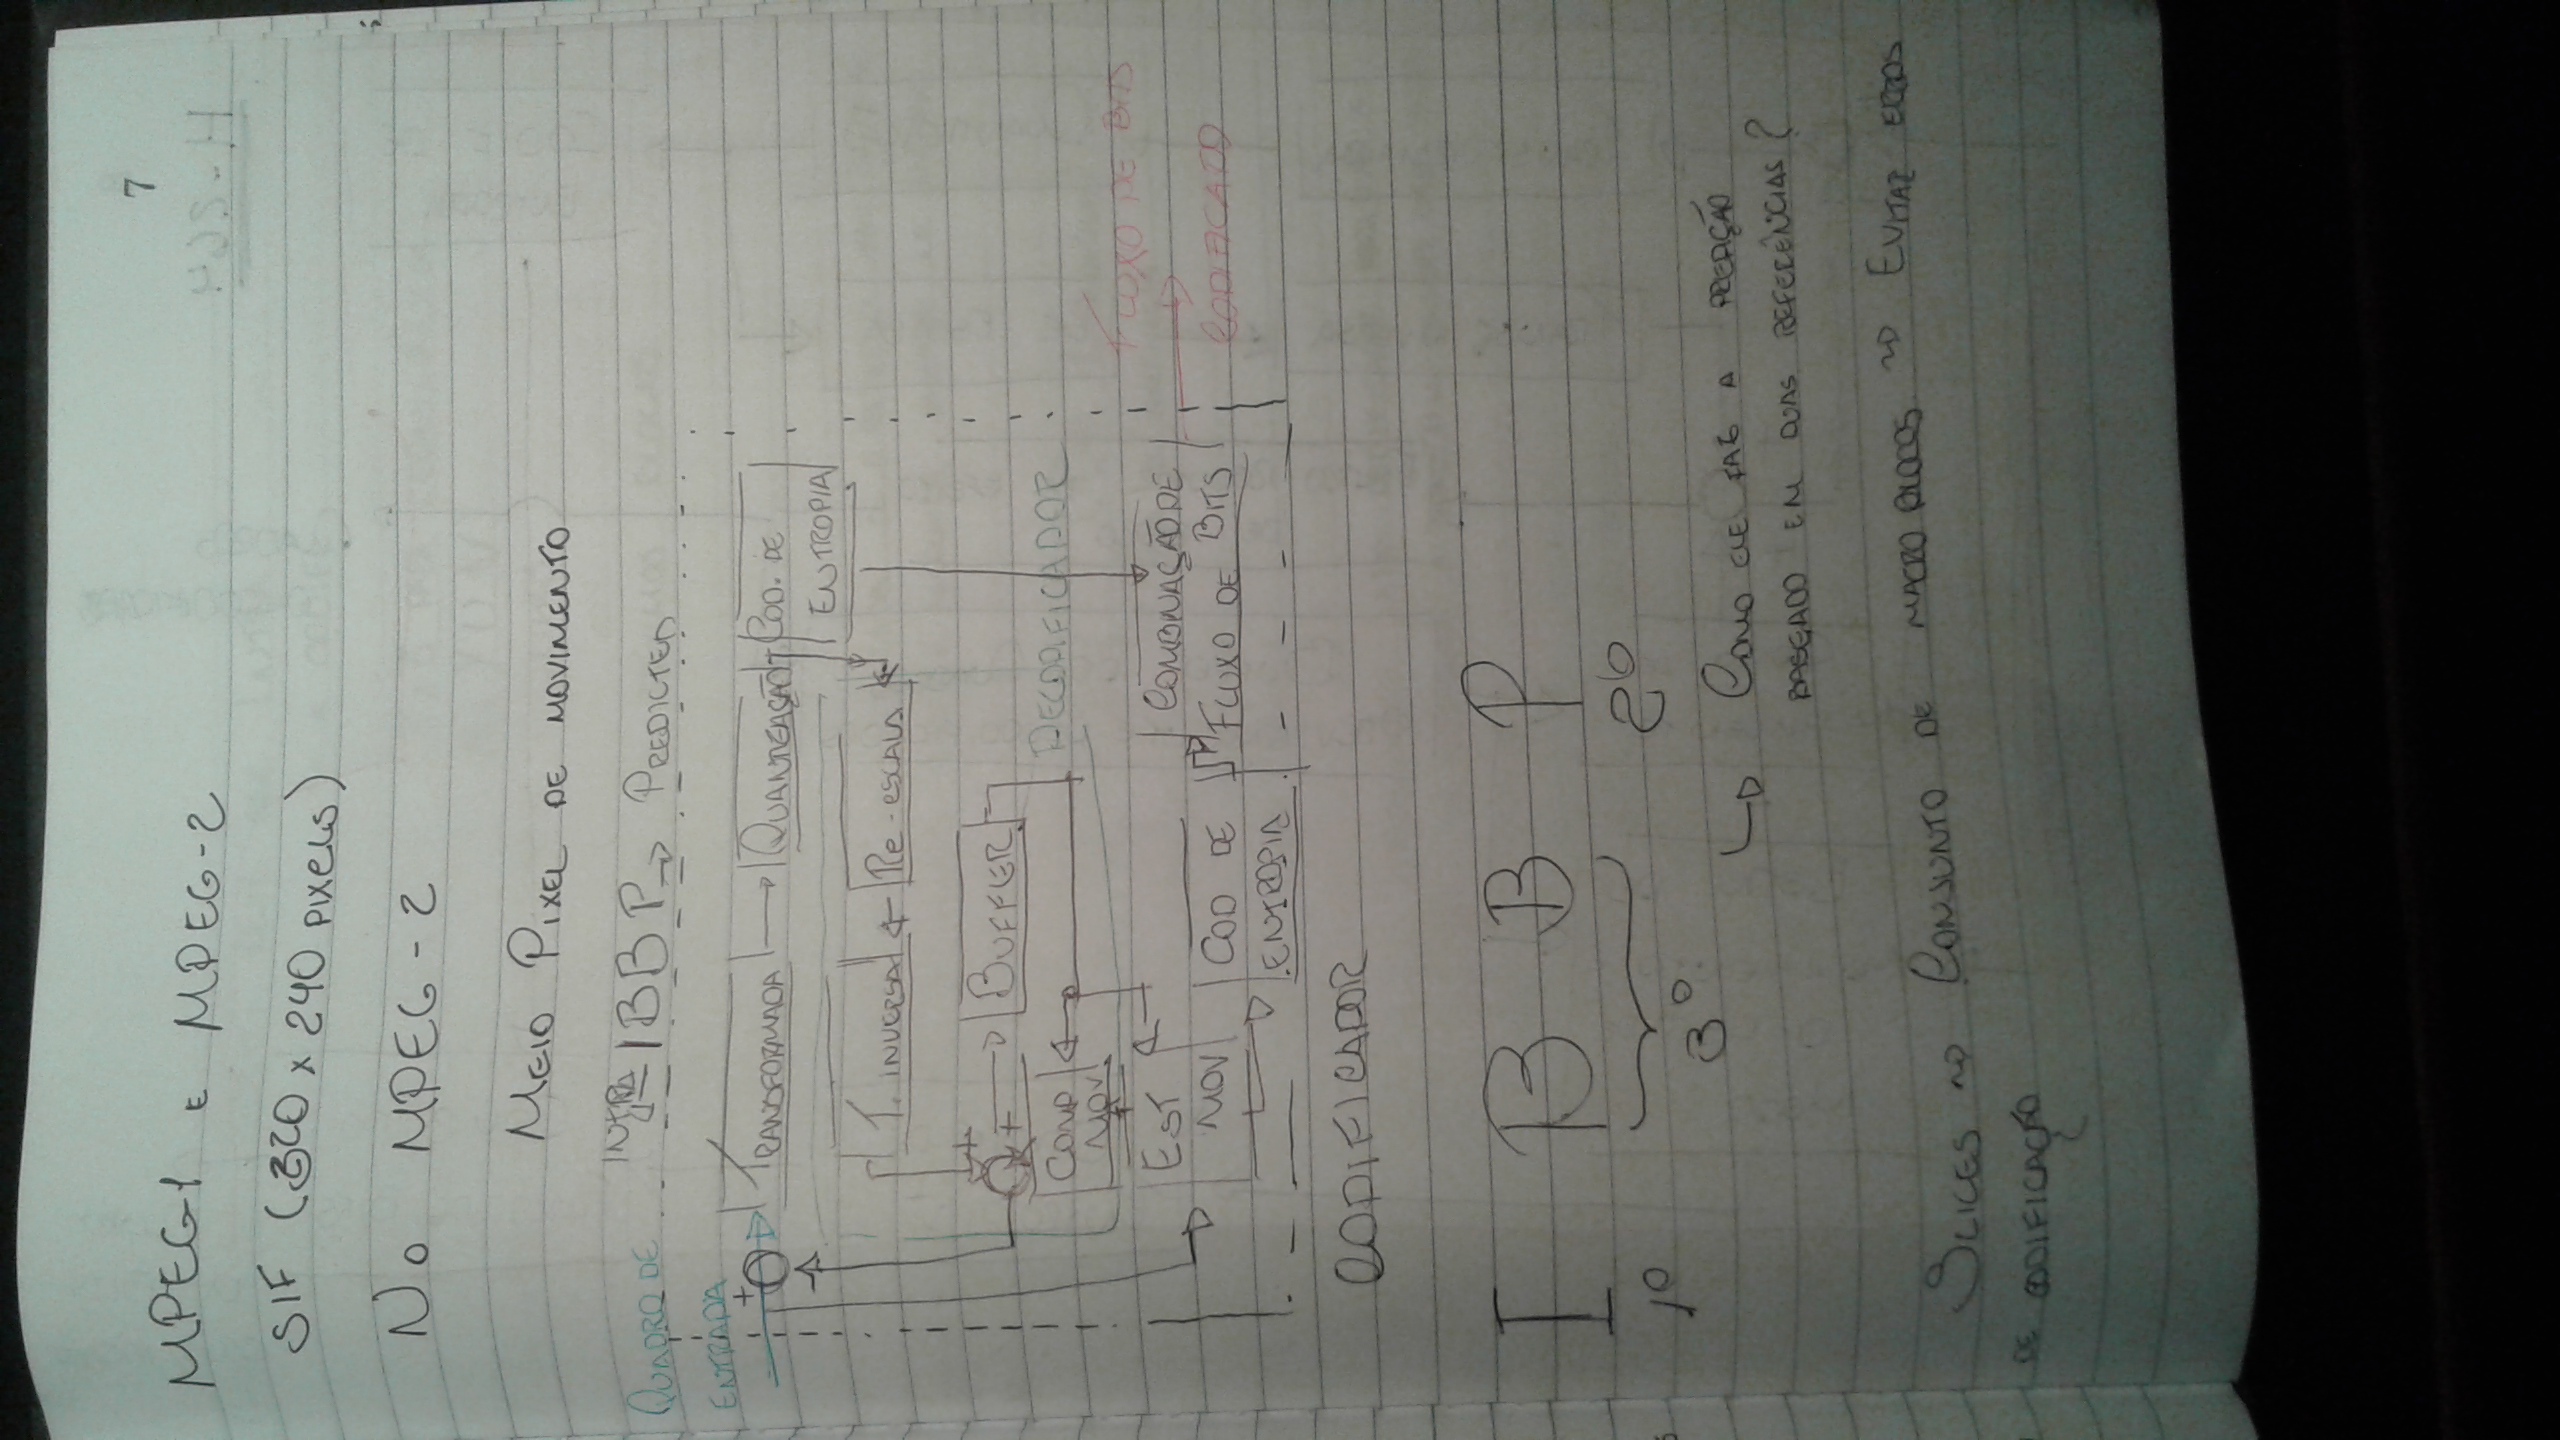 7
MPEG1 E MPEG-2
SIF (320 x 240 PIXELS)
NO MPEG-2
MEIO PIXEL DE MOVIMENTO
INTRA IBBP PREDICTED
QUADRO DE
ENTRADA
+
TRANSFORMADA
QUANTEAÇÃO
COD. DE
ENTROPIA
T. INVERSA
RE-ESCALA
+
+
BUFFER
DECODIFICADOR
COMP
MOV
EST
MOV
COD DE
ENTROPIA
COMBINAÇÃO DE
FLUXO DE BITS
FLUXO DE BITS
CODIFICADO
CODIFICADOR
I B B P
1º 3º 2º
COMO ELE FAZ A
BASEADO EM DUAS REFERÊNCIAS?
SLICES CONJUNTO DE MACRO BLOCOS EVITAR ERROS
DE CODIFICAÇÃO